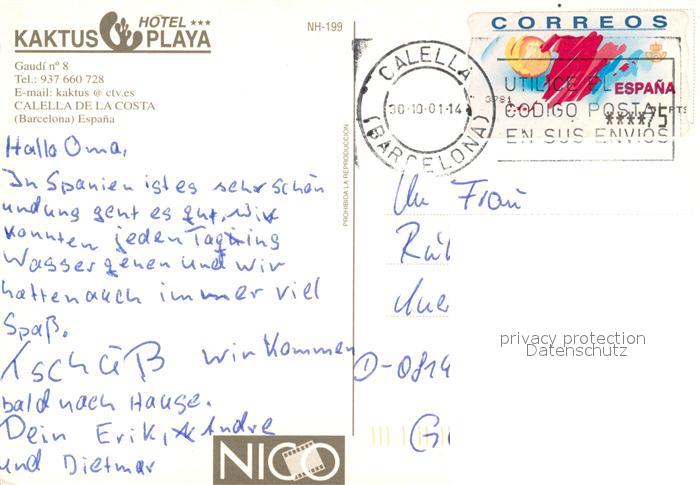 HOTEL ***
KAKTUS PLAYA
Gaudí nº 8
Tel.: 937 660 728
E-mail: kaktus @ ctv.es
CALELLA DE LA COSTA
(Barcelona) España
NH-199
Hallo Oma,
In Spanien ist es sehr schön
und ung geht es gut, wir
konnten jeden Tag ins
Wasser gehen und wir
hatten auch immer viel
Spaß.
Tschüß wir kommen
bald nach Hause.
Dein Erik, Andre
und Dietmar
NICO
PROHIBIDA LA REPRODUCCION
CORREOS
ESPAÑA
****75
PTS
CALELLA
30-10-01-14
(BARCELONA)
UTILICE EL
CODIGO POSTAL
EN SUS ENVIOS
Frau
D-0814
privacy protection
Datenschutz